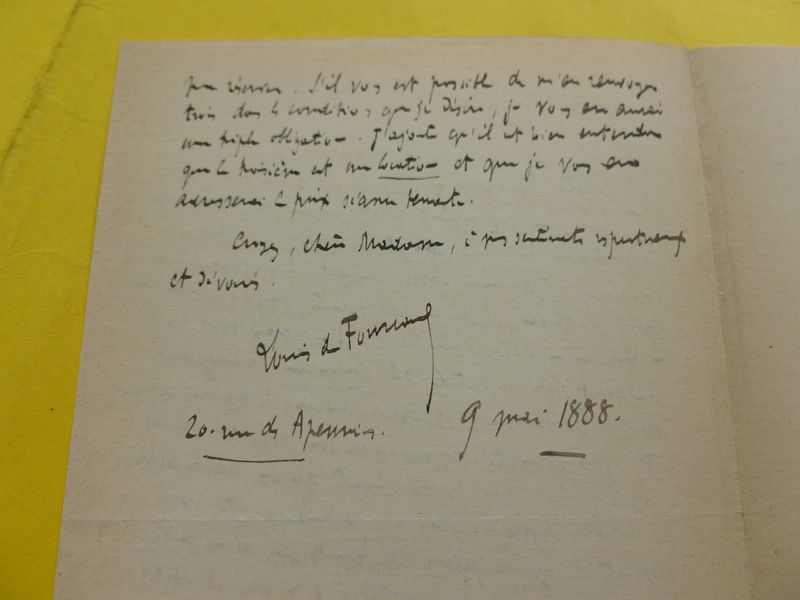 S'il vous est possible de m'en renvoyer
trois dans les conditions que je désire, je vous en aurai
une triple obligation. J'ajoute qu'il est bien entendu
que la troisième est en location et que je vous en
adresserai le prix séance tenante.
Croyez, chère Madame, à mes sentiments respectueux
et dévoués.
Louis de Fourcaud
20. rue des Apennins.
9 mai 1888.